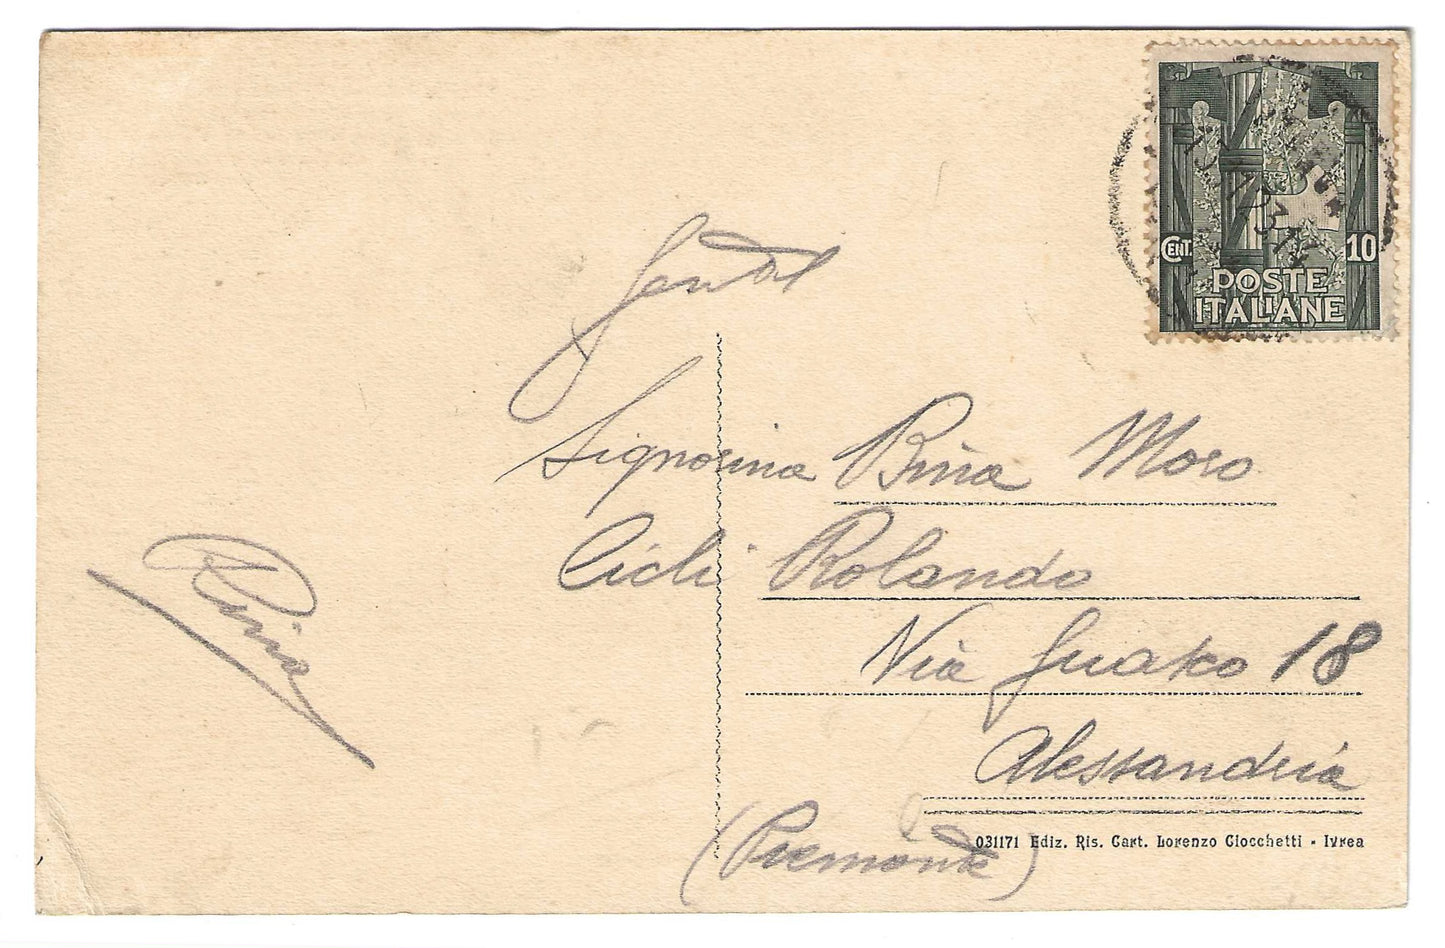 CENT. 10
POSTE
ITALIANE
Gent.
Signorina Bina Moro
Cicli Rolando
Via Guasco 18
Alessandria
(Piemonte)
Pina
031171 Ediz. Ris. Cart. Lorenzo Ciocchetti - Ivrea